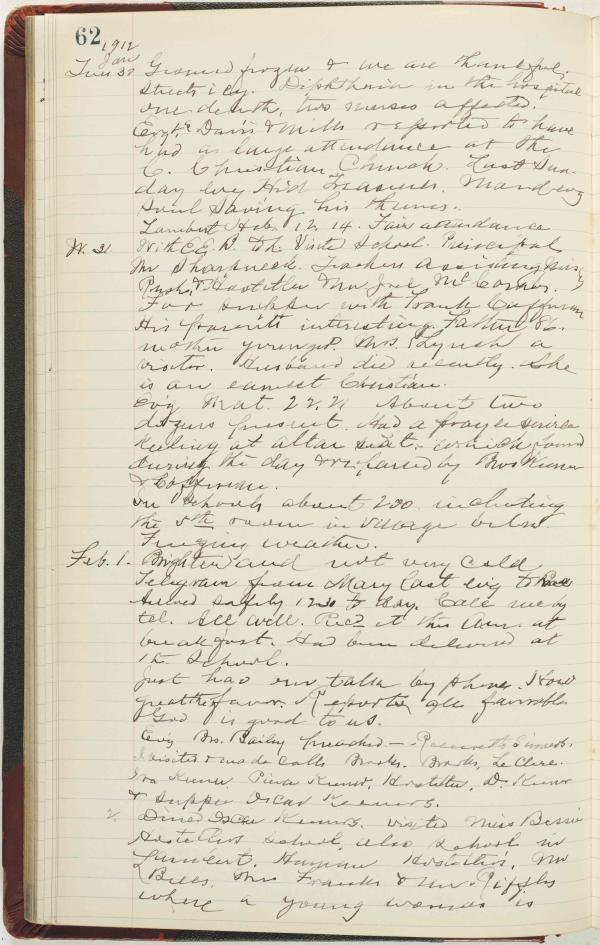 62
1912
Jan
Tues 30. Ground frozen & we are thankful.
streets icy. Diphtheria in the hospital
one death, two nurses affected.
Davis & Mills reported to have
had as large attendance at the
C. Christian Church. Last Sun-
day evg Hid Treasures. Monday evg
Soul Saving his themes.
Lambert Heb. 12, 14. Fair attendance
W. 31. With C.E. R. to Visite School. Principal
Mr Sharpneck. Teachers assisting Miss
Hostetler & Mrs Joel McCorner.
For supper with Frank Coffman
His parents interesting. Father 86.
mother younger. Mrs. Lynch a
visitor. Husband died recently. She
is an earnest Christian.
Evg Mat. 22, 21 About two
dozens present. Had a prayer service
Keeling at altar seat. which found
during the day & repaired by Bros
& Coffman.
In schools about 200 including
the 5th room in village below.
Freezing weather.
Feb. 1. Brighter and not very cold
Telegram from Mary last evg to
Arived safely 12:30 to day. Call me by
tel. All well. Recd it this A.m. at
breakfast. Had been delivered at
the School.
Just had our talk by phone. How
great the favor. Reports all favorable
God is good to us.
Evg Bro. Bailey preached.
Visited & made calls Brooks. Brooks, LeClere.
Ira Hostetler, D.
& supper Oscar
2. Dined Oscar visited Miss Bessie
Hostetlers school also school in
Lambert. Hostetlers, Mr
Bills. Mrs Franks & Mr.
where a young woman is